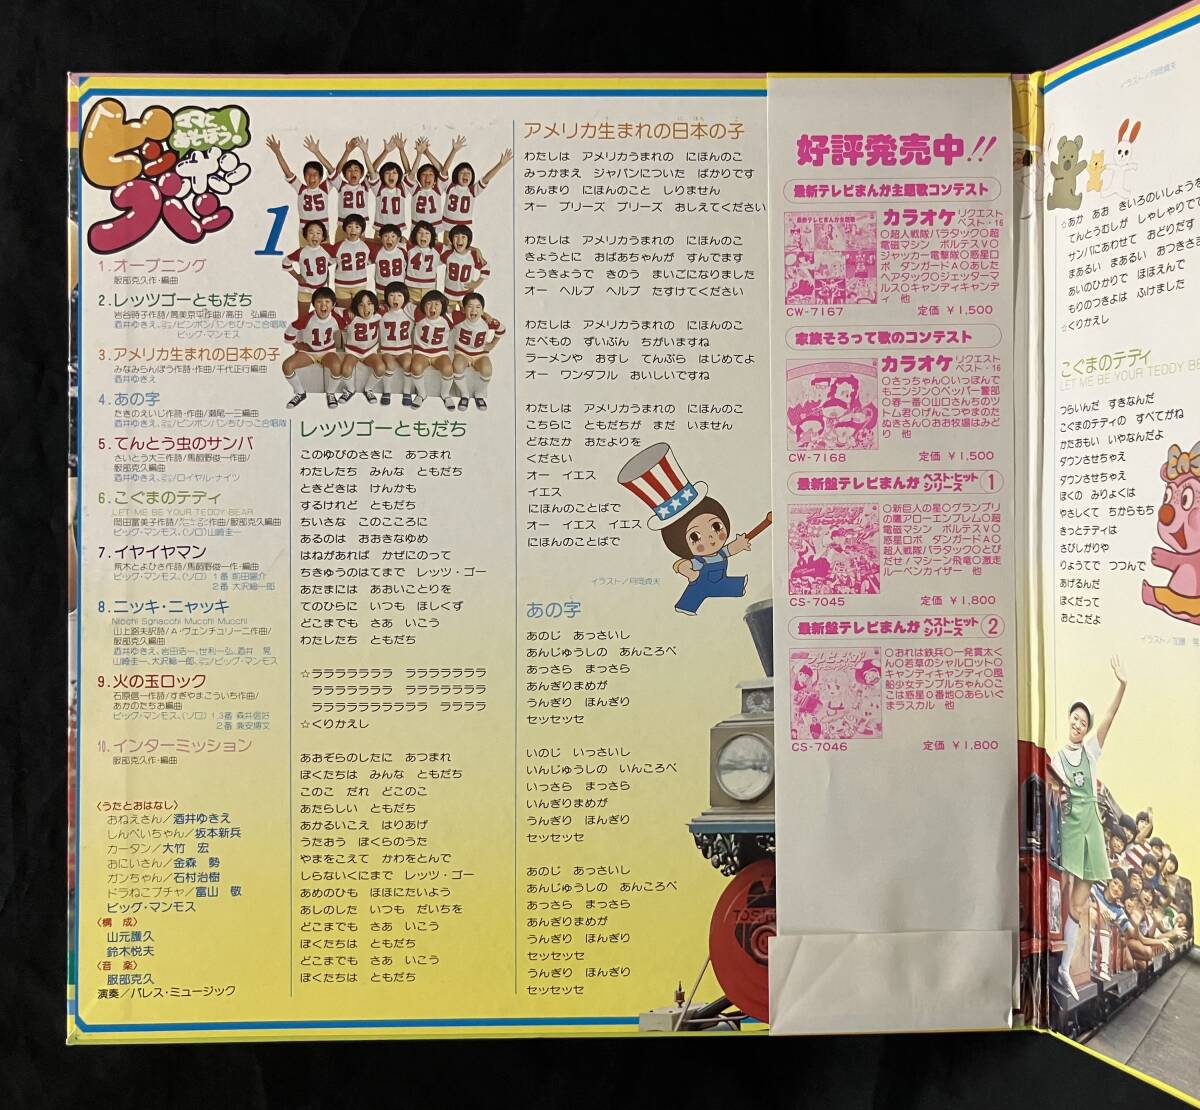 ママと
あそぼう!
ピンポンパン
1
35 20 10 21 30
18 22 88 47 90
11 27 72 15 56
1.オープニング
服部克久作・編曲
2.レッツゴーともだち
岩谷時子作詩/筒美京平作曲/高田 弘編曲
酒井ゆきえ、ピンポンパンちびっこ合唱隊
ビッグ・マンモス
3.アメリカ生まれの日本の子
みなみらんぼう作詩・作曲/千代正行編曲
酒井ゆきえ
4.あの字
たきのえいじ作詩・作曲/瀬尾一三編曲
酒井ゆきえ、ピンポンパンちびっこ合唱隊
5.てんとう虫のサンバ
さいとう大三作詩/馬飼野俊一作曲/
服部克久編曲
酒井ゆきえ、ロイヤル・ナイツ
6.こぐまのテディ
LET ME BE YOUR TEDDY BEAR
岡田冨美子作詩/作曲/服部克久編曲
ビッグ・マンモス、(ソロ)山崎圭一
7.イヤイヤマン
荒木とよひさ作詩/馬飼野俊一作・編曲
ビッグ・マンモス、(ソロ) 1番 前田陽介
2番 大沢総一郎
8.ニッキ・ニャッキ
Nicchi Sgnacchi Mucchi Mucchi
山上路夫訳詩/A・ヴェンチュリーニ作曲/
服部克久編曲
酒井ゆきえ、岩田浩一、世利一弘、酒井 晃
山崎圭一、大沢総一郎、ビッグ・マンモス
9.火の玉ロック
石原信一作詩/すぎやまこういち作曲/
あかのたちお編曲
ビッグ・マンモス、(ソロ) 1.3番 森井信好
2番 兼安博文
10.インターミッション
服部克久作・編曲
〈うたとおはなし〉
おねえさん/酒井ゆきえ
しんぺいちゃん/坂本新兵
カータン/大竹 宏
おにいさん/金森 勢
ガンちゃん/石村治樹
ドラねこプチャ/富山 敬
ビッグ・マンモス
〈構 成〉
山元護久
鈴木悦夫
〈音 楽〉
服部克久
演奏/パレス・ミュージック
レッツゴーともだち
このゆびのさきに あつまれ
わたしたち みんな ともだち
ときどきは けんかも
するけれど ともだち
ちいさな このこころに
あるのは おおきなゆめ
はねがあれば かぜにのって
ちきゅうのはてまで レッツ・ゴー
あたまには あおいことりを
てのひらに いつも ほしくず
どこまでも さあ いこう
わたしたち ともだち
☆ララララララ ララララララ
ララララララ ララララララ
ラララララララララ ラララララ
☆くりかえし
あおぞらのしたに あつまれ
ぼくたちは みんな ともだち
このこ だれ どこのこ
あたらしい ともだち
あかるいこえ はりあげ
うたおう ぼくらのうた
やまをこえて かわをとんで
しらないくにまで レッツ・ゴー
あめのひも ほほにたいよう
あしのした いつも だいちを
どこまでも さあ いこう
ぼくたちは ともだち
どこまでも さあ いこう
ぼくたちは ともだち
アメリカ生まれの日本の子
わたしは アメリカうまれの にほんのこ
みっかまえ ジャパンについた ばかりです
あんまり にほんのこと しりません
オー プリーズ プリーズ おしえてください
わたしは アメリカうまれの にほんのこ
きょうとに おばあちゃんが すんでます
とうきょうで きのう まいごになりました
オー ヘルプ ヘルプ たすけてください
わたしは アメリカうまれの にほんのこ
たべもの ずいぶん ちがいますね
ラーメンや おすし てんぷら はじめてよ
オー ワンダフル おいしいですね
わたしは アメリカうまれの にほんのこ
こちらに ともだちが まだ いません
どなたか おたよりを
ください
オー イエス
イエス
にほんのことばで
オー イエス イエス
にほんのことばで
イラスト/月岡貞夫
あの字
あのじ あっさいし
あんじゅうしの あんころべ
あっさら まっさら
あんぎりまめが
うんぎり ぼんぎり
セッセッセ
いのじ いっさいし
いんじゅうしの いんころべ
いっさら まっさら
いんぎりまめが
うんぎり ぼんぎり
セッセッセ
あのじ あっさいし
あんじゅうしの あんころべ
あっさら まっさら
あんぎりまめが
うんぎり ぼんぎり
セッセッセ
うんぎり ぼんぎり
セッセッセ
好評発売中!!
最新テレビまんが主題歌コンテスト
カラオケ リクエスト
ベスト・16
○超人戦隊バラタック○超
電磁マシン ボルテスV○
ジャッカー電撃隊○惑星ロ
ボ ダンガードA○あした
へアタック○ジェッターマ
ルス○キャンディキャンディ
他
CW-7167 定価 ¥1,500
家族そろって歌のコンテスト
カラオケ リクエスト
ベスト・16
○さっちゃん○いっぽんで
もニンジン○ペッパー警部
○春一番○山口さんちのツ
トム君○げんこつやまのた
ぬきさん○おお牧場はみど
り 他
CW-7168 定価 ¥1,500
最新盤テレビまんが ベスト・ヒット
シリーズ 1
○新巨人の星○グランプリ
の鷹アローエンブレム○超
電磁マシン ボルテスV○
惑星ロボ ダンガードA○
超人戦隊バラタック○とび
だせ!マシーン飛竜○激走
ルーベンカイザー 他
CS-7045 定価 ¥1,800
最新盤テレビまんが ベスト・ヒット
シリーズ 2
○おれは鉄兵○一発貫太く
ん○若草のシャルロット○
キャンディキャンディ○風
船少女テンプルちゃん○こ
こは惑星0番地○あらいぐ
まラスカル 他
CS-7046 定価 ¥1,800
イラスト/月岡貞夫
☆あか あお きいろのいしょうを
てんとうむしが しゃしゃりでて
サンバにあわせて おどりだす
まあるい まあるい おつきさま
あいのひかりで ほほえんで
もりのつきよは ふけました
☆くりかえし
こぐまのテディ
LET ME BE YOUR TEDDY BE
つらいんだ すきなんだ
こぐまのテディの すべてがね
かたおもい いやなんだよ
ダウンさせちゃえ
ダウンさせちゃえ
ぼくの みりょくは
やさしくて ちからもち
きっとテディは
さびしがりや
りょうてで つつんで
あげるんだ
ぼくだって
おとこだよ